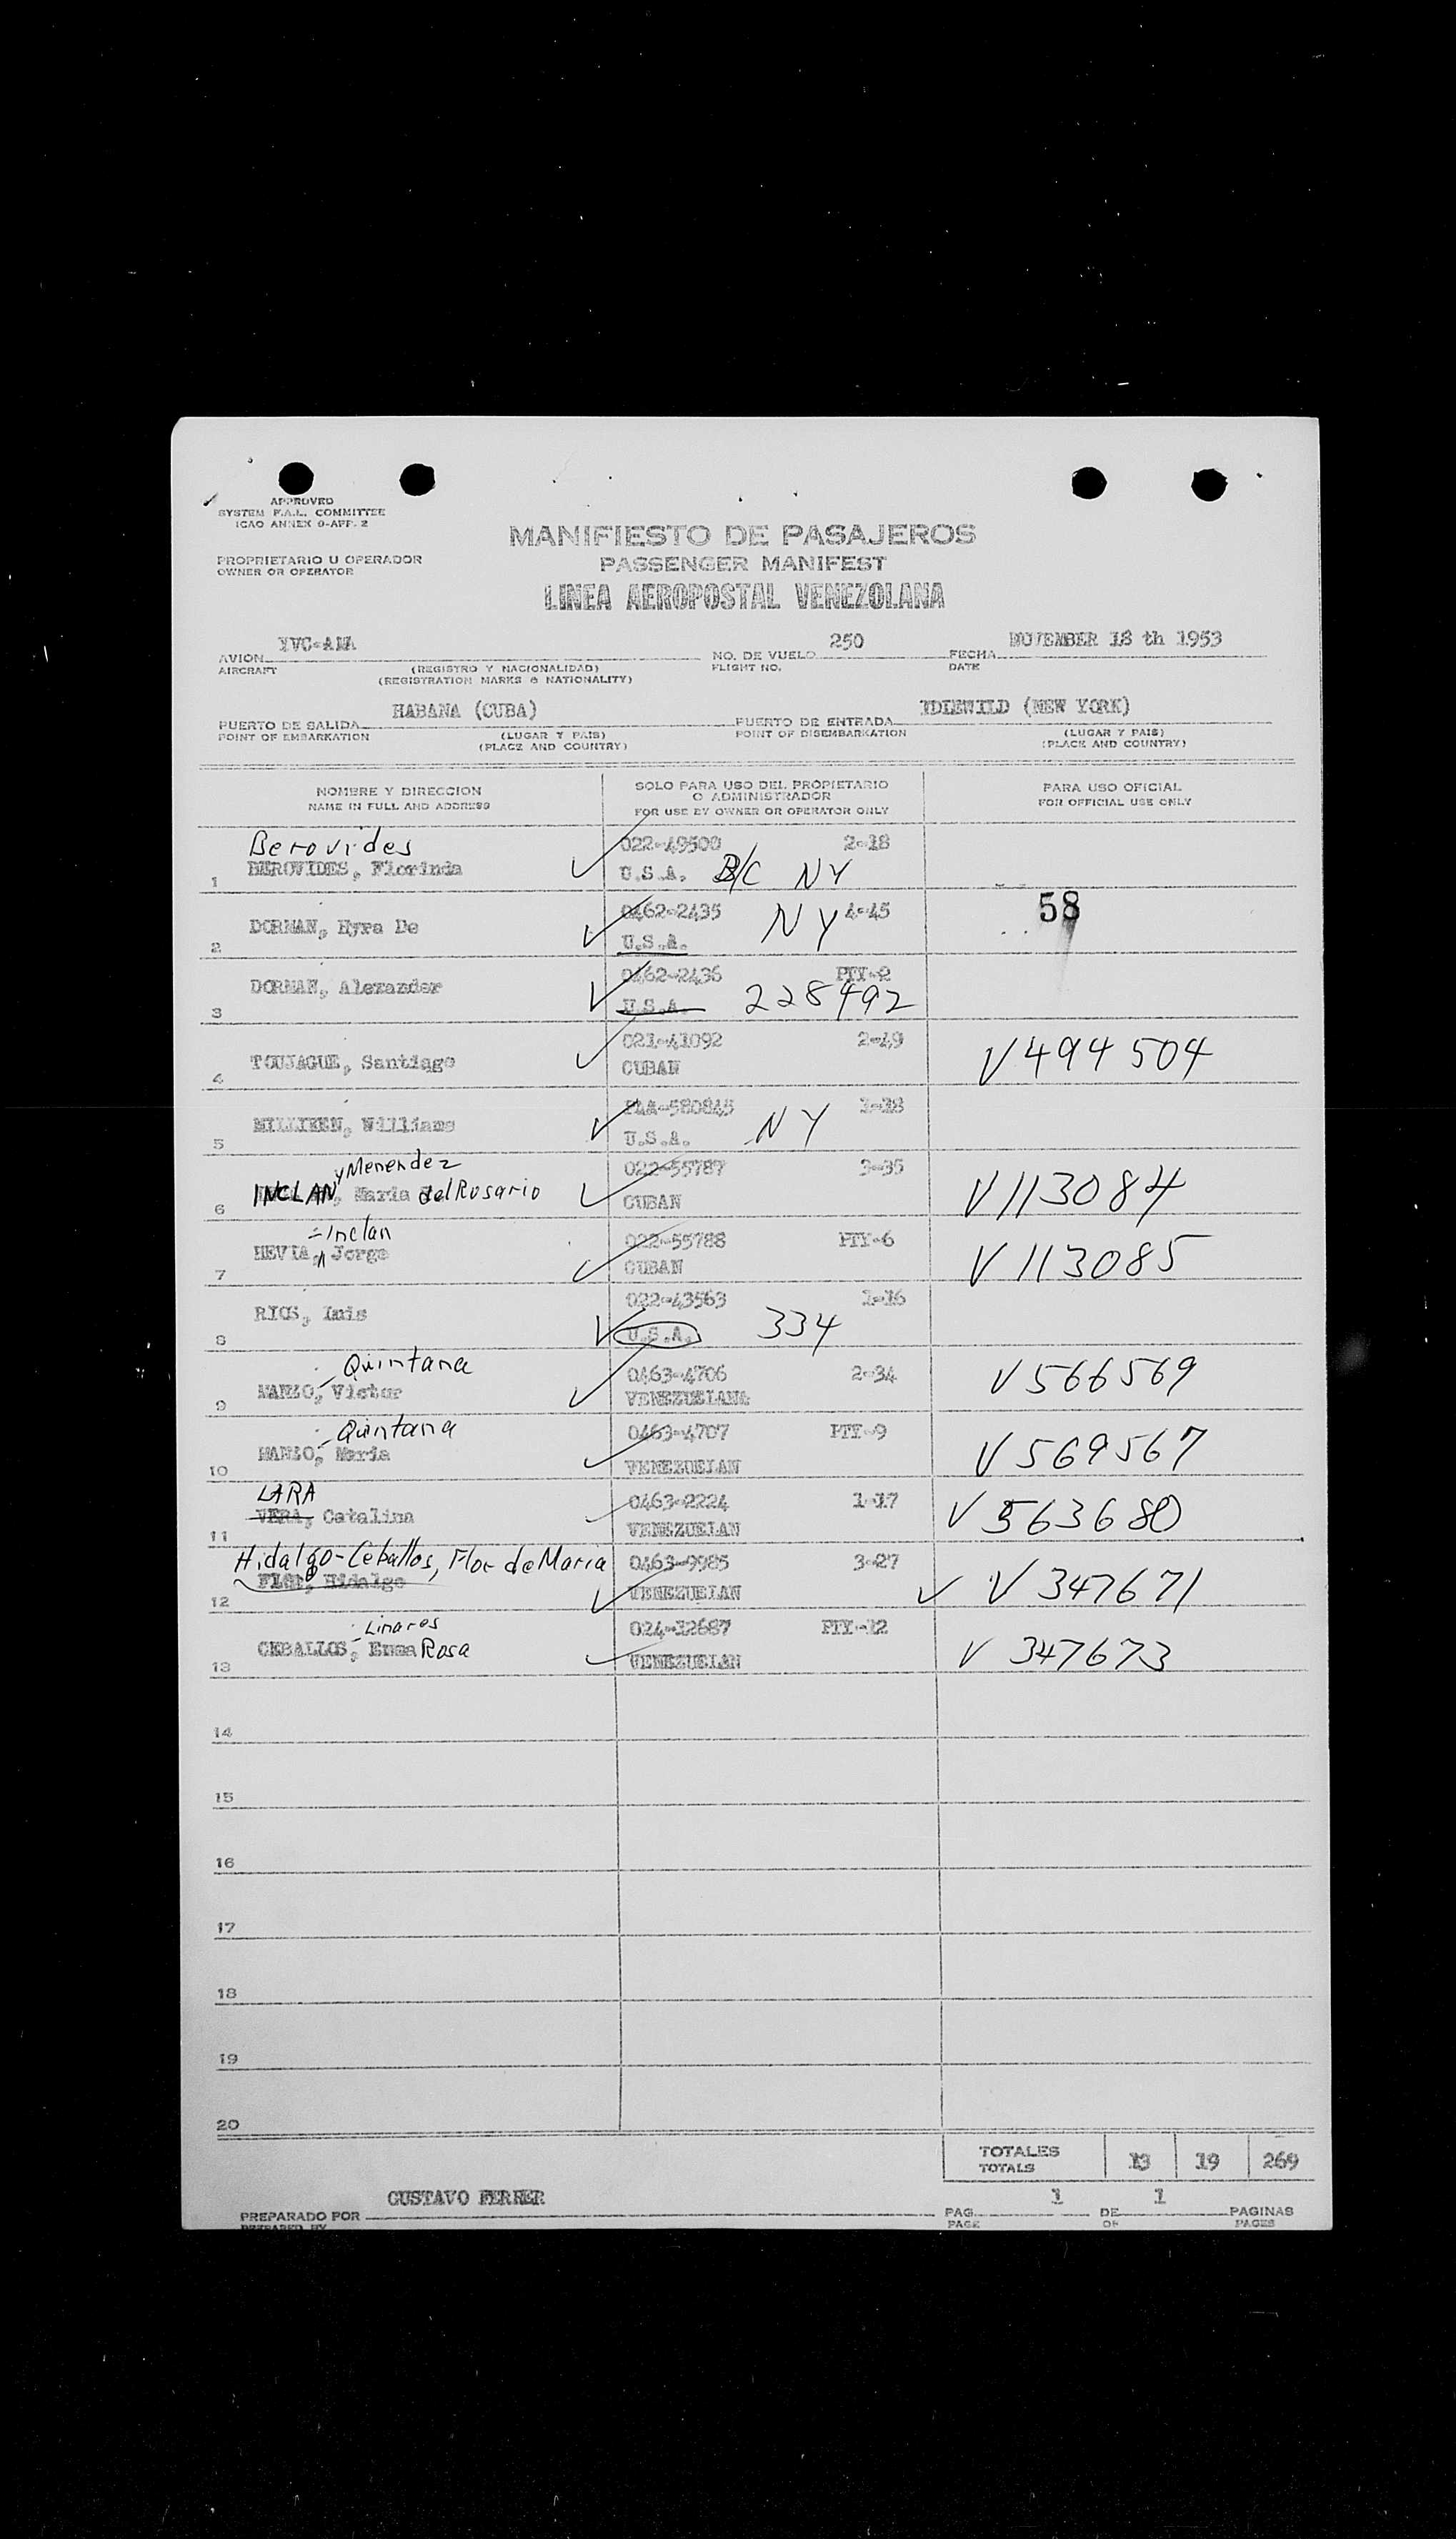 APPROVED
SYSTEM F.A.L. COMMITTEE
ICAO ANNEX 9-APP. 2
MANIFIESTO DE PASAJEROS
PASSENGER MANIFEST
PROPRIETARIO U OPERADOR
OWNER OR OPERATOR
LINEA AEROPOSTAL VENEZOLANA
AVION YVC-AMA NO. DE VUELO 250 FECHA NOVEMBER 18 th 1953
AIRCRAFT (REGISTRO Y NACIONALIDAD) FLIGHT NO. DATE
(REGISTRATION MARKS & NATIONALITY)
PUERTO DE SALIDA HABANA (CUBA) PUERTO DE ENTRADA IDLEWILD (NEW YORK)
POINT OF EMBARKATION (LUGAR Y PAIS) POINT OF DISEMBARKATION (LUGAR Y PAIS)
(PLACE AND COUNTRY) (PLACE AND COUNTRY)
NOMBRE Y DIRECCION SOLO PARA USO DEL PROPIETARIO PARA USO OFICIAL
NAME IN FULL AND ADDRESS O ADMINISTRADOR FOR OFFICIAL USE ONLY
FOR USE BY OWNER OR OPERATOR ONLY
Berovides 022-49500 2-18
1 BEROVIDES, Florinda U.S.A. B/C NY
0462-2435 NY 4-45 58
2 DORMAN, Hyra De U.S.A.
0462-2436 PTY-2
3 DORMAN, Alexander U.S.A. 228492
021-41092 2-49
4 TOUJAGUE, Santiago CUBAN V494504
PAA-580845 1-18
5 MILLIKEN, Williams U.S.A. NY
y Menendez 022-55787 3-35
6 INCLAN, Maria del Rosario CUBAN V1113084
=Inclan 022-55788 PTY-6
7 HEVIA, Jorge CUBAN V113085
022-43563 1-16
8 RIOS, Luis U.S.A. 334
-Quintana 0463-4706 2-34
9 MANZO, Victor VENEZUELANA V566569
-Quintana 0463-4707 PTY-9
10 MANZO, Maria VENEZUELAN V569567
LARA 0463-2224 1-17
11 VERA, Catalina VENEZUELAN V563680
Hidalgo-Ceballos, Flor de Maria 0463-9985 3-27
12 FLOR, Hidalgo VENEZUELAN V347671
-Linares 024-12687 PTY-12
13 CEBALLOS, Emma Rosa VENEZUELAN V 347673
14
15
16
17
18
19
20
TOTALES 13 19 269
TOTALS
PREPARADO POR GUSTAVO FERRER PAG. 1 DE 1 PAGINAS
PREPARED BY PAGE OF PAGES